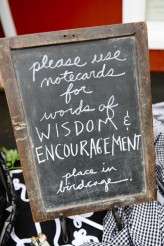 please use
notecards
for
words of
WISDOM &
ENCOURAGEMENT
place in
birdcage.